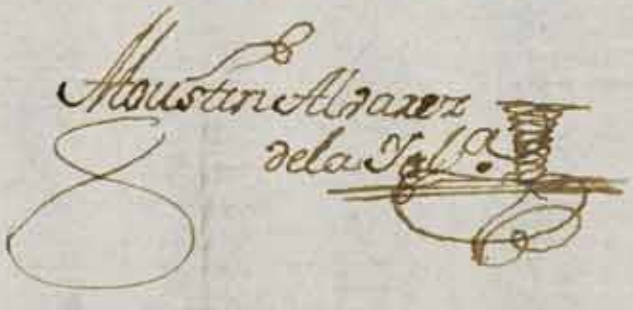 Agustin Alvarez
dela Yglª.